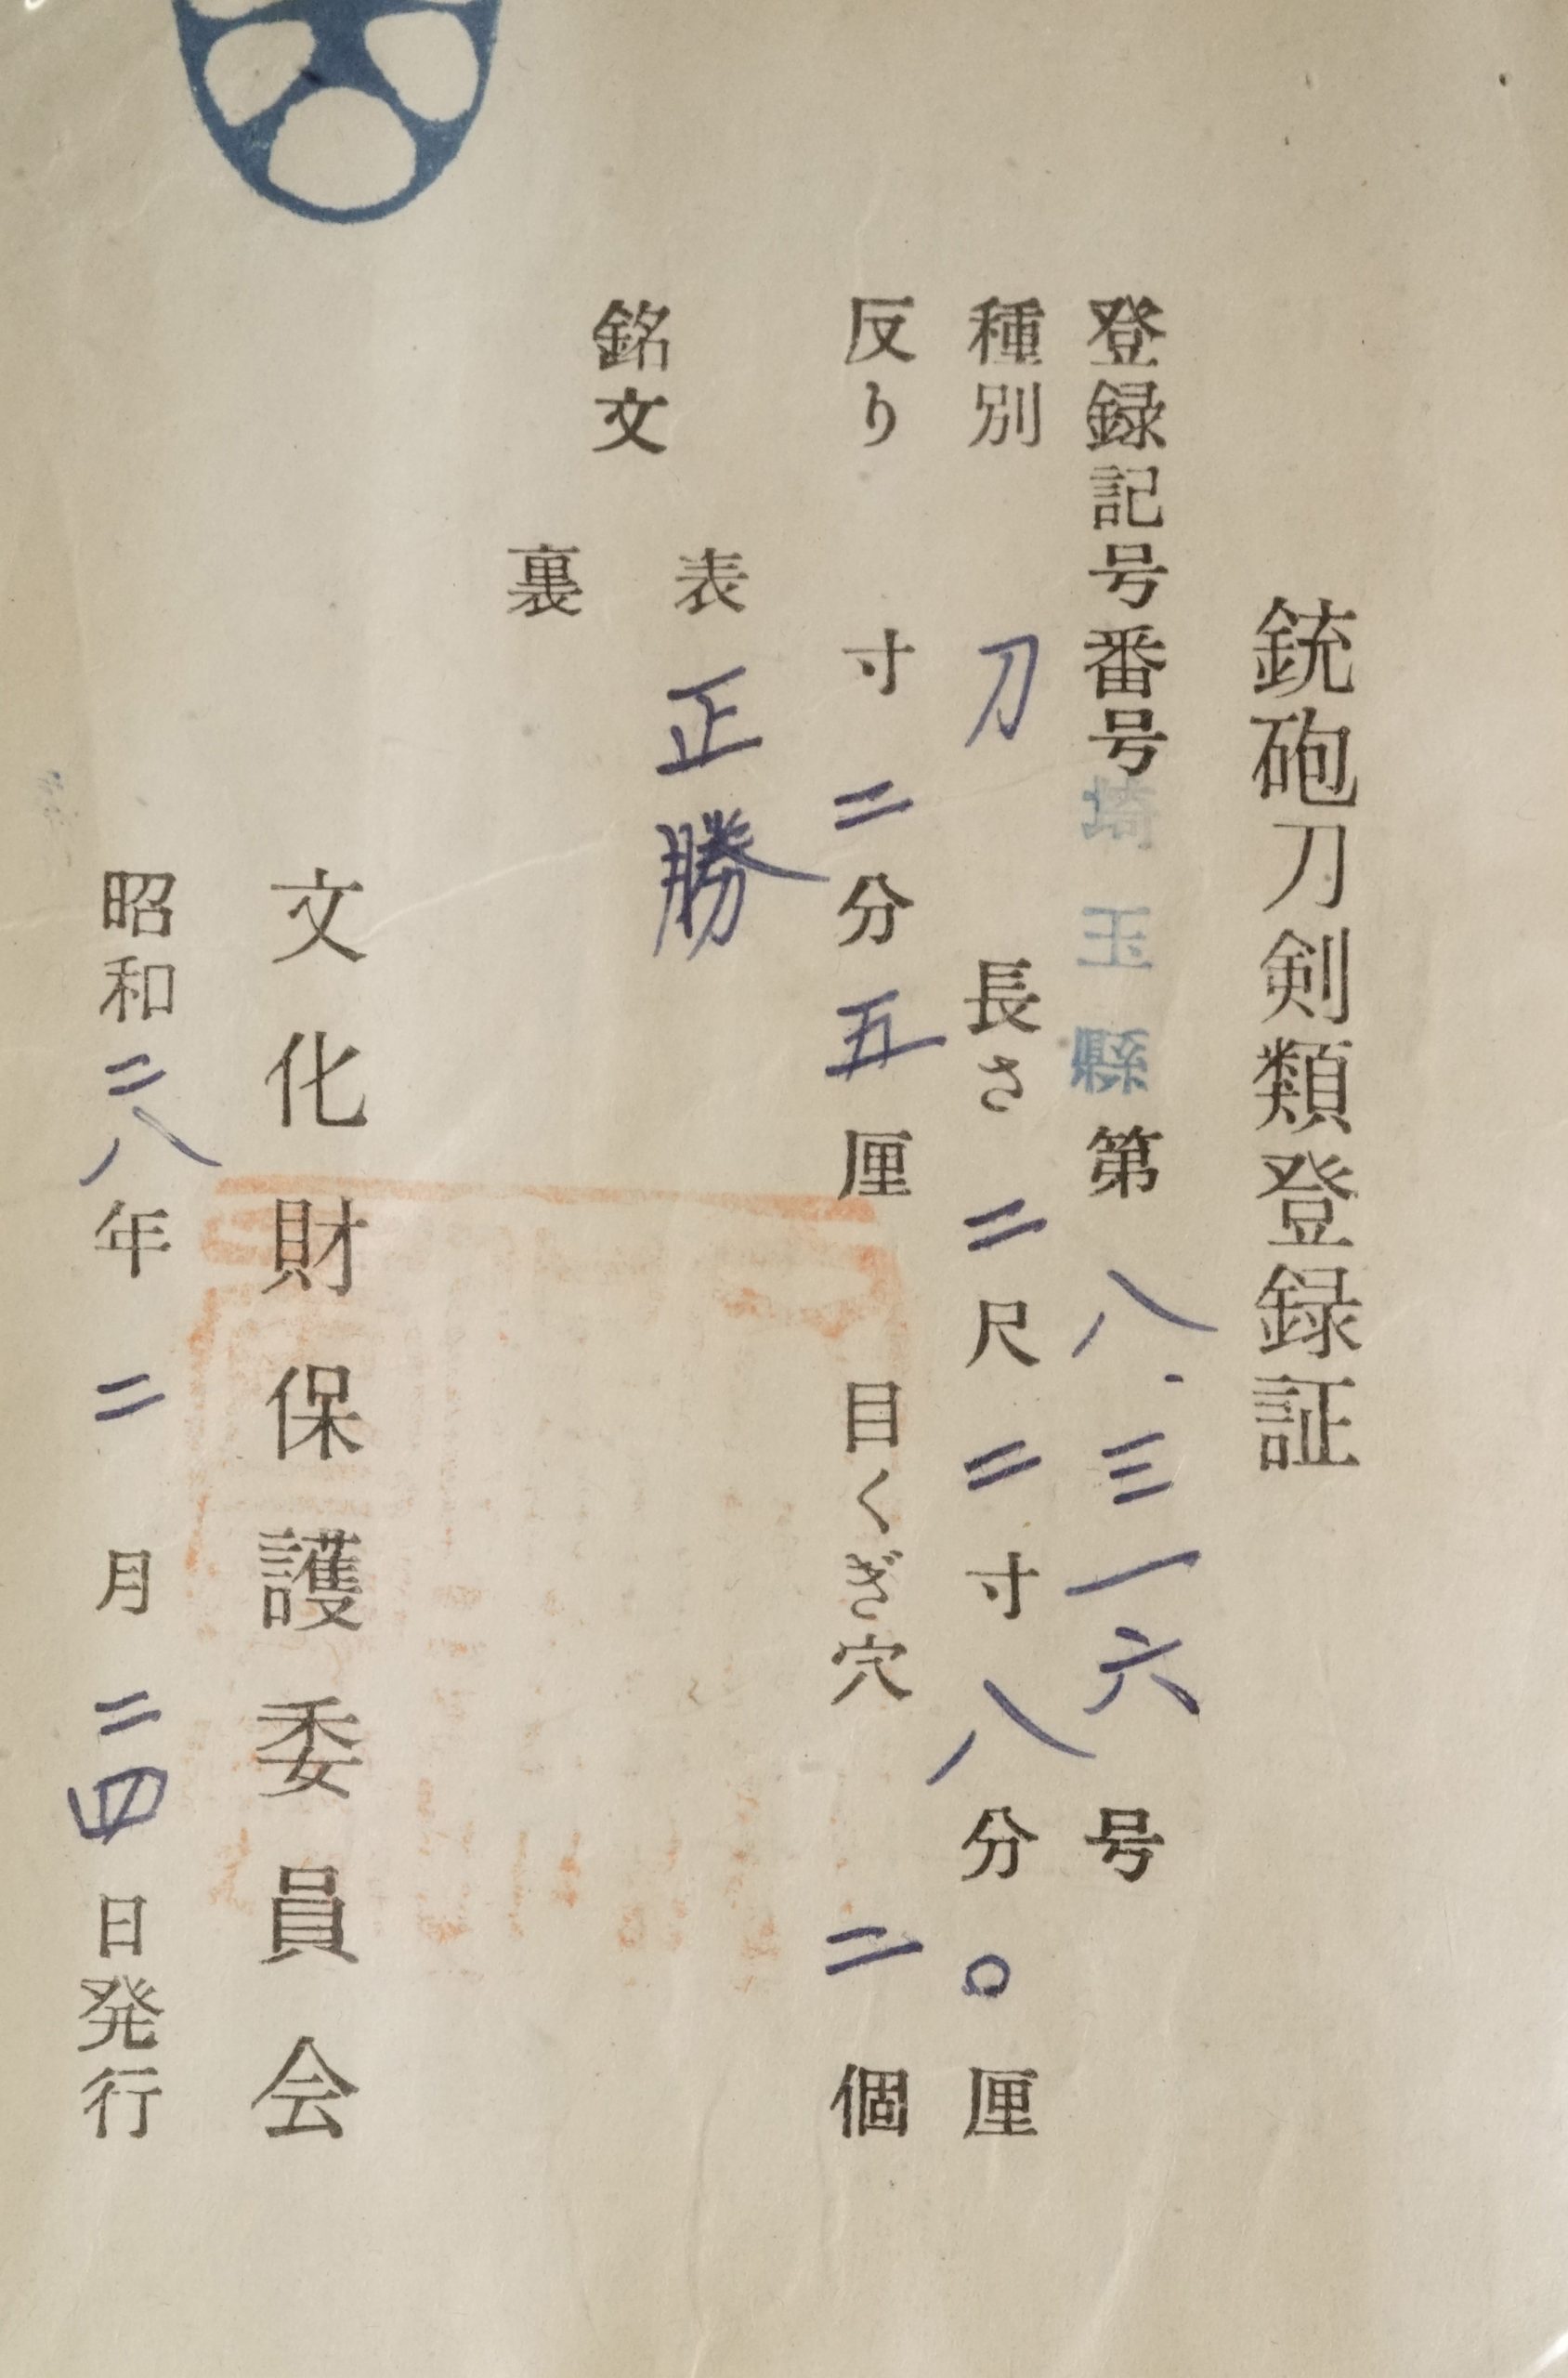 銃砲刀剣類登録証
登録記号番号 埼玉縣 第 八.三一六 号
種別 刀 長さ 二尺二寸八分〇厘
反り 寸二分五厘 目くぎ穴 二個
銘文
表 正勝
裏
文化財保護委員会
昭和二八年二月二四日発行